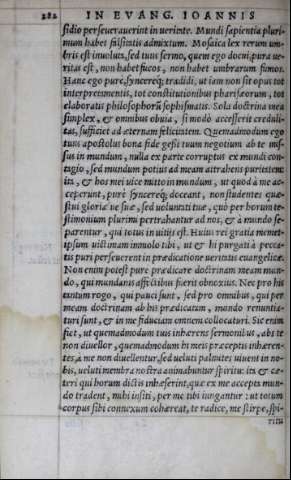 282 IN EVANG. IOANNIS
sidio perseuerauerint in ueritate. Mundi sapientia pluri-
mum habet falsitatis admixtum. Mosaica lex rerum um-
bris est inuoluta, sed tuus sermo, quem ego docui, pura ue-
ritas est, non habet fucos, non habet umbrarum fumos.
Hanc ego purè, synceréq; tradidi, ut iam non sit opus tot
interpretamentis, tot constitutionibus pharisæorum, tot
elaboratis philosophorũ sophismatis. Sola doctrina mea
simplex, & omnibus obuia, si modò accesserit creduli-
tas, sufficiet ad æternam felicitatem. Quemadmodum ego
tuus apostolus bona fide gessi tuum negotium abs te mis-
sus in mundum, nulla ex parte corruptus ex mundi con-
tagio, sed mundum potius ad meam attrahens puritatem:
ita, & hos mei uice mitto in mundum, ut quod à me ac-
ceperunt, purè synceréq; doceant, non studentes quæ-
stui gloriæ ue suæ, sed uoluntati tuæ, quò per horum te-
stimonium plurimi pertrahantur ad nos, & à mundo se-
parentur, qui totus in uitijs est. Huius rei gratia memet-
ipsum uictimam immolo tibi, ut & hi purgati à pecca-
tis puri perseuerent in prædicatione ueritatis euangelicæ.
Non enim potest purè prædicare doctrinam meam mun-
do, qui mundanis affectibus fuerit obnoxius. Nec pro his
tantum rogo, qui pauci sunt, sed pro omnibus, qui per
meam doctrinam ab his prædicatam, mundo renuntia-
turi sunt, & in me fiduciam omnem collocaturi. Sic enim
fiet, ut quemadmodum tuis inhærens sermonibus, abs te
non diuellor, quemadmodum hi meis præceptis inhæren-
tes, à me non diuellentur, sed ueluti palmites uiuent in no-
bis, ueluti membra nostra animabuntur spiritu: ita & cæ-
teri qui horum dictis inhæserint, quæ ex me accepta mun-
do tradent, mihi insiti, per me tibi iungantur: ut totum
corpus sibi connexum cohæreat, te radice, me stirpe, spi-
ritu